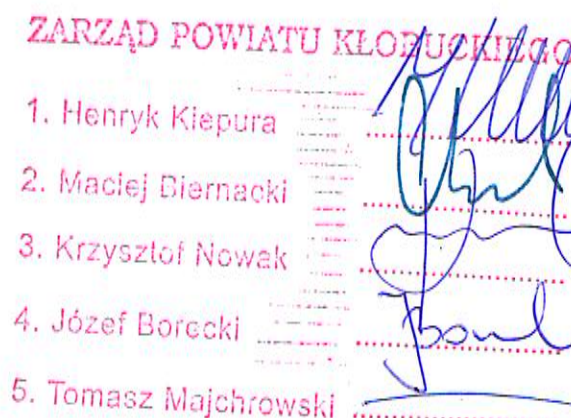 ZARZĄD POWIATU KŁOBUCKIEGO
1. Henryk Kiepura
2. Maciej Biernacki
3. Krzysztof Nowak
4. Józef Borecki
5. Tomasz Majchrowski